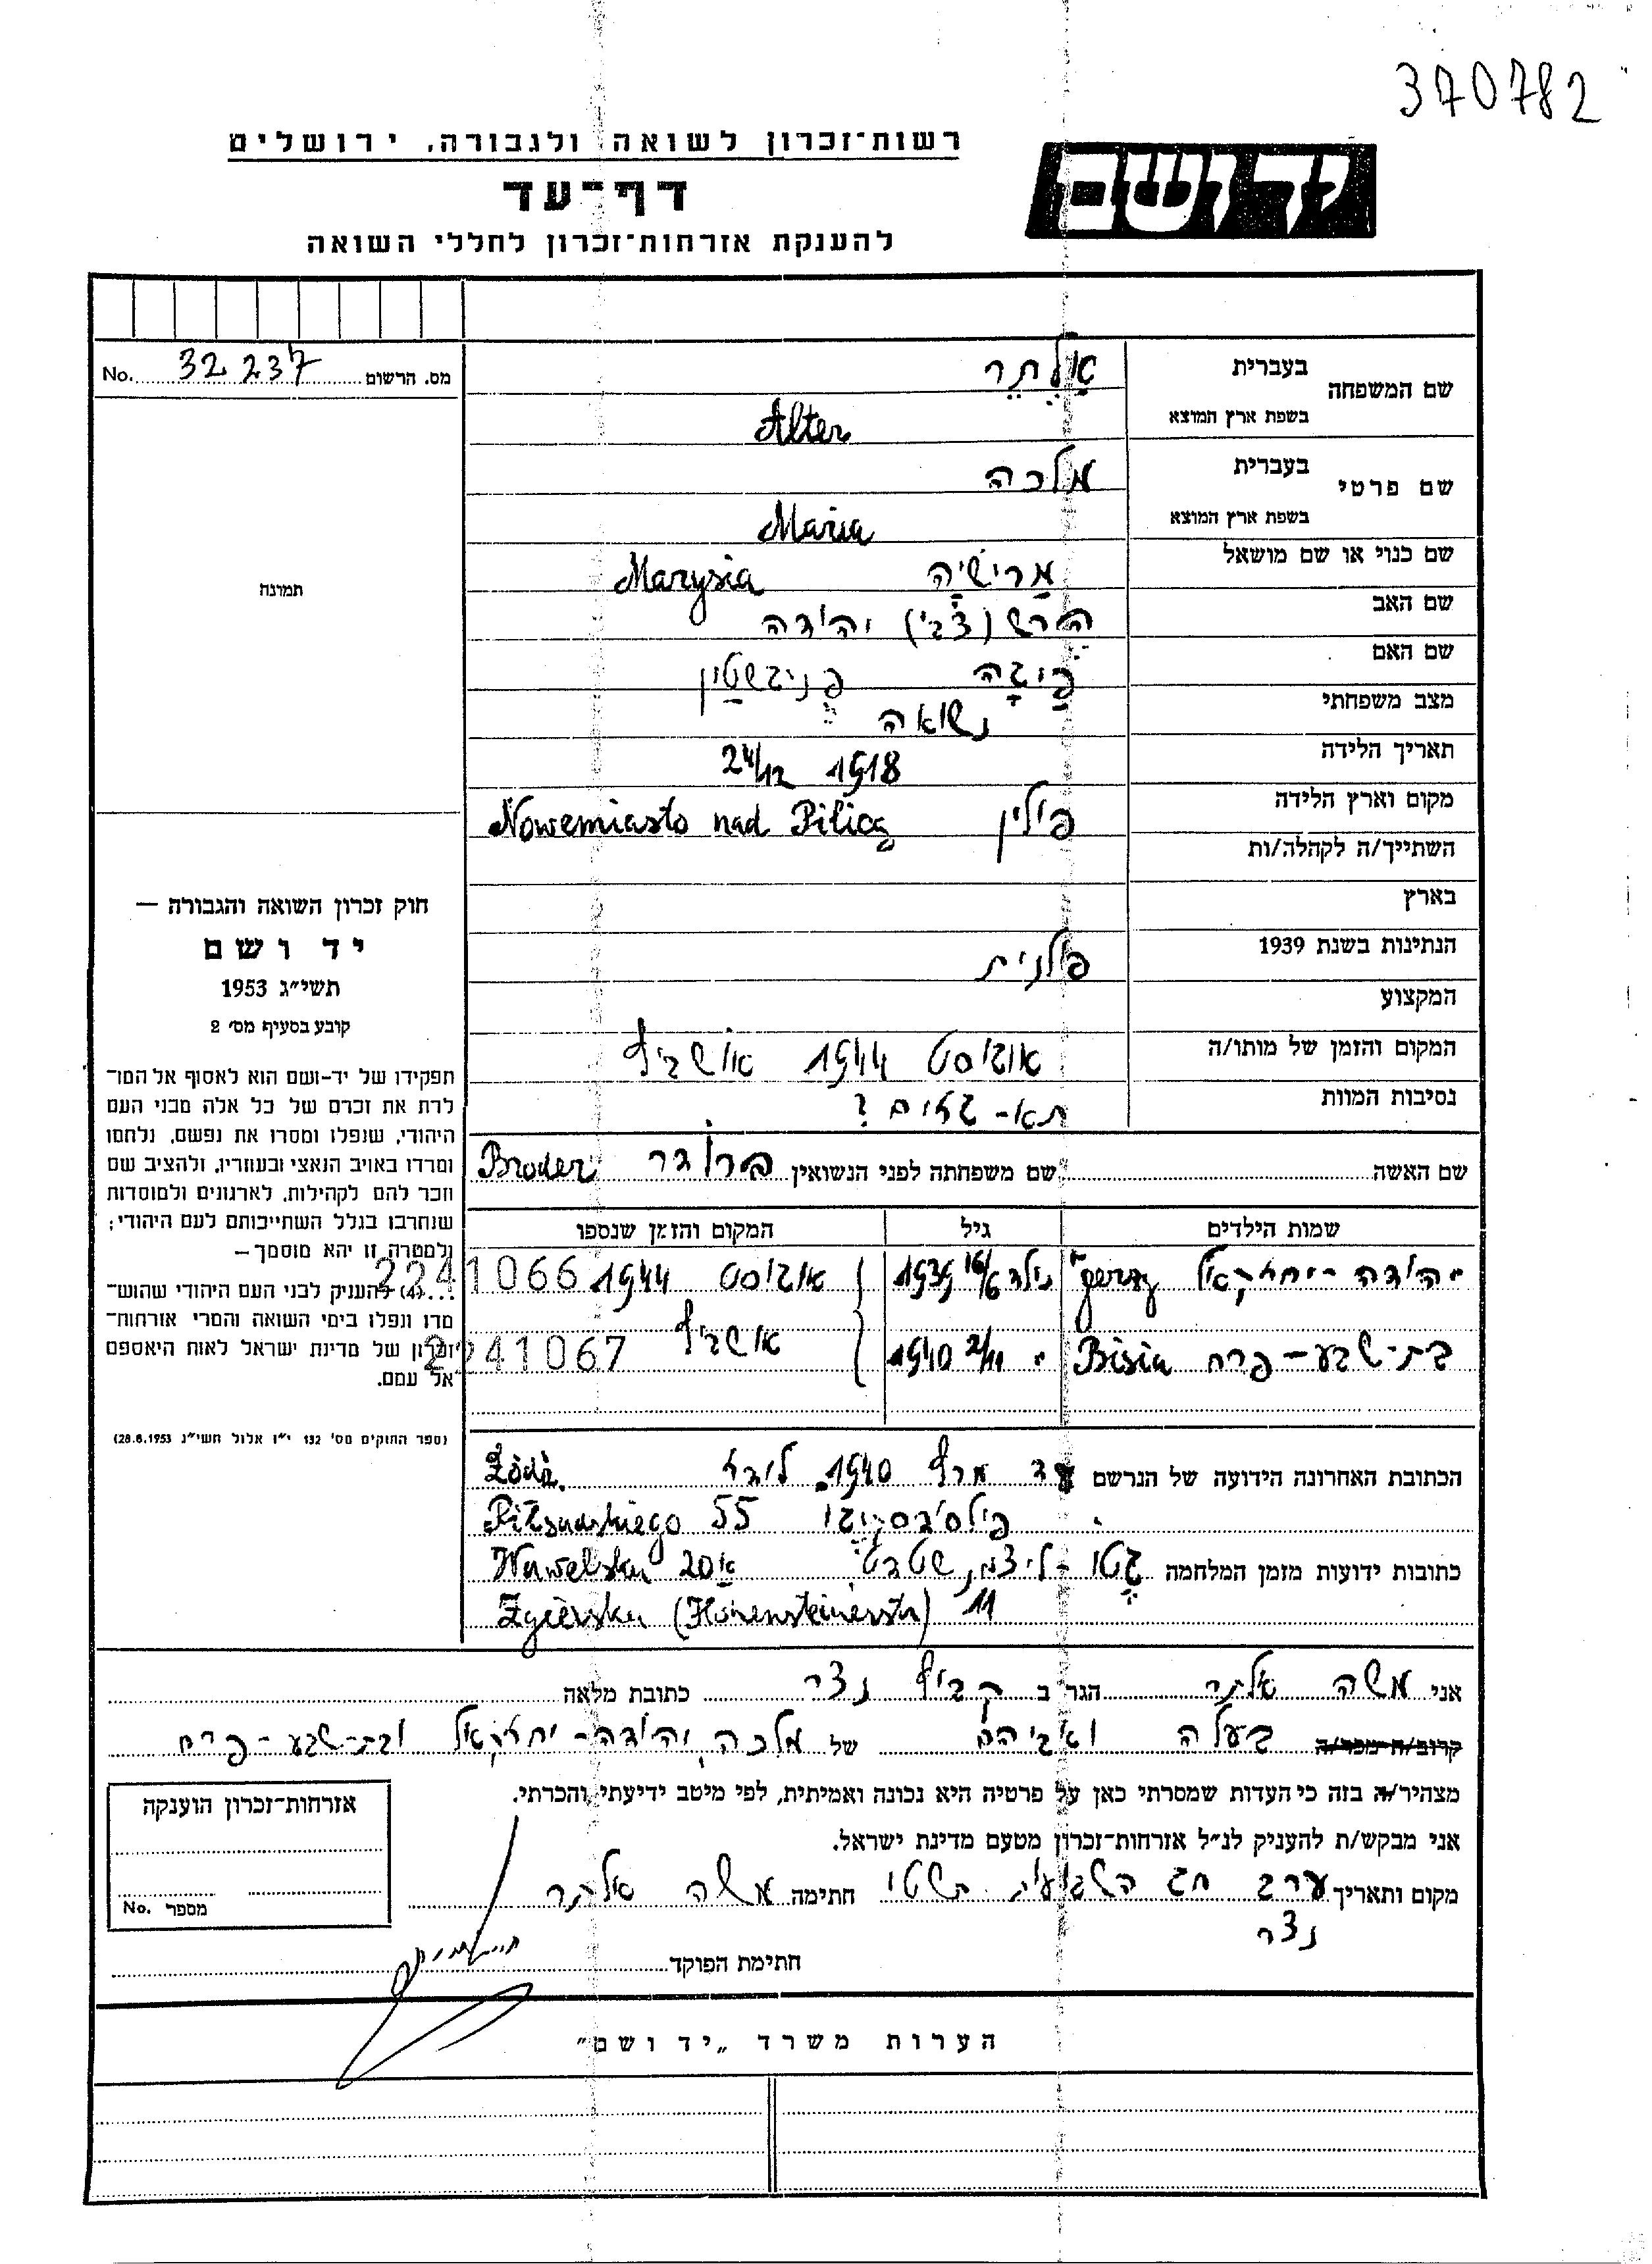 370782
רשות־זכרון לשואה ולגבורה, ירושלים
יד ושם
דף־עד
להענקת אזרחות־זכרון לחללי השואה
מס. הרשום 32237 No.
תמונה
חוק זכרון השואה והגבורה —
יד ושם
תשי״ג 1953
קובע בסעיף מס׳ 2
תפקידו של יד־ושם הוא לאסוף אל המו־
לדת את זכרם של כל אלה מבני העם
היהודי, שנפלו ומסרו את נפשם, נלחמו
ומרדו באויב הנאצי ובעוזריו, ולהציב שם
וזכר להם לקהילות, לארגונים ולמוסדות
שנחרבו בגלל השתייכותם לעם היהודי;
ולמטרה זו יהא מוסמך—
...(4) להעניק לבני העם היהודי שהוש־
מדו ונפלו בימי השואה והמרי אזרחות־
זכרון של מדינת ישראל לאות היאספם
אל עמם.
(ספר החוקים מס׳ 132 י״ז אלול תשי״ג 28.8.1953)
שם המשפחה
בעברית אַלְתֶּר
בשפת ארץ המוצא Alter
שם פרטי
בעברית מלכה
בשפת ארץ המוצא Maria
שם כנוי או שם מושאל מרישיה Marysia
שם האב הירש (צבי) יהודה
שם האם פייגה
מצב משפחתי נשואה
תאריך הלידה 24/12 1918
מקום וארץ הלידה פולין Nowemiasto nad Pilicą
השתייך/ה לקהלה/ות
בארץ
הנתינות בשנת 1939 פולנית
המקצוע
המקום והזמן של מותו/ה אוגוסט 1944 אושביץ
נסיבות המוות תא־גזים ?
שם האשה שם משפחתה לפני הנשואין ברודר Broder
שמות הילדים גיל המקום והזמן שנספו
יהודה־יחזקאל Jerzy נולד 16/6 1939 אוגוסט 1944 2241066
בת־שבע־פרח Bisia " 2/11 1940 אושביץ 2241067
הכתובת האחרונה הידועה של הנרשם עד מרץ 1940 לודז Łódź.
פילסודסקיגו 55 Piłsudskiego
כתובות ידועות מזמן המלחמה גטו־ליצמנשטדט 20א Wawelska
Zgierska (Hohensteinerstr) 11
אני משה אלתר הגר ב קבוץ נצר כתובת מלאה
קרוב/ה מכר/ה בעלה ואביהם של מלכה, יהודה־יחזקאל ובת־שבע־פרח
מצהיר/ה בזה כי העדות שמסרתי כאן על פרטיה היא נכונה ואמיתית, לפי מיטב ידיעתי והכרתי.
אני מבקש/ת להעניק לנ״ל אזרחות־זכרון מטעם מדינת ישראל.
מקום ותאריך ערב חג השבועות תשטו חתימה משה אלתר
נצר
חתימת הפוקד
אזרחות־זכרון הוענקה
מספר No.
הערות משרד „יד ושם״